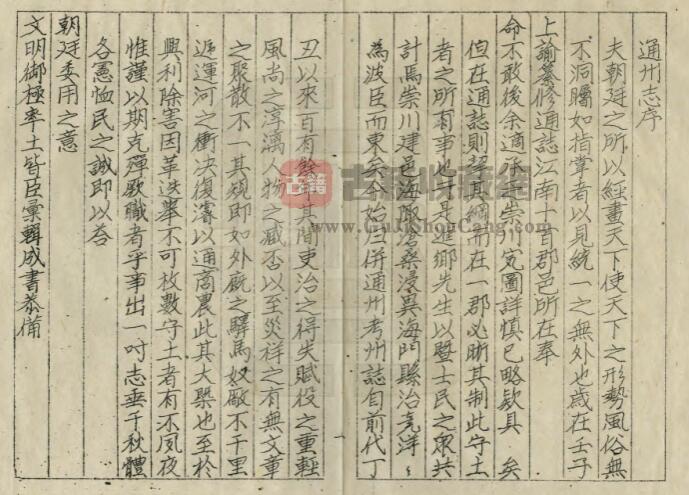 通州志序
夫朝廷之所以經畫天下使天下之形勢風俗無
不洞矚如指掌者以見統一之無外也歲在壬子
上諭纂修通誌江南十首郡邑所在奉
命不敢後余適承乏崇川寃圖詳慎已略欵具 矣
但在通誌則挈其綱而在一郡必晰其制此守土
者之所有事也于是進鄉先生以暨士民之眾共
計焉崇川建邑海隩滄桑浸異海門縣治竟洋〻
為波臣而東矣今始歸併通州考州誌自前代丁
丑以來百有餘年其間吏治之得失賦役之重輕
風尚之淳漓人物之臧否以至災祥之有無文章
之聚散不一其規即如外廐之驛馬奴廠不千里
遞運河之衝決復濬以通商農此其大槩也至於
興利除害因革迭舉不可枚數守土者有不夙夜
惟謹以期克殫厥職者乎事出一時志垂千秋體
各憲恤民之誠即以荅
朝廷委用之意
文明御極率土皆臣彙輯成書恭備
古籍
古籍收藏網
www.GujiShouCang.com